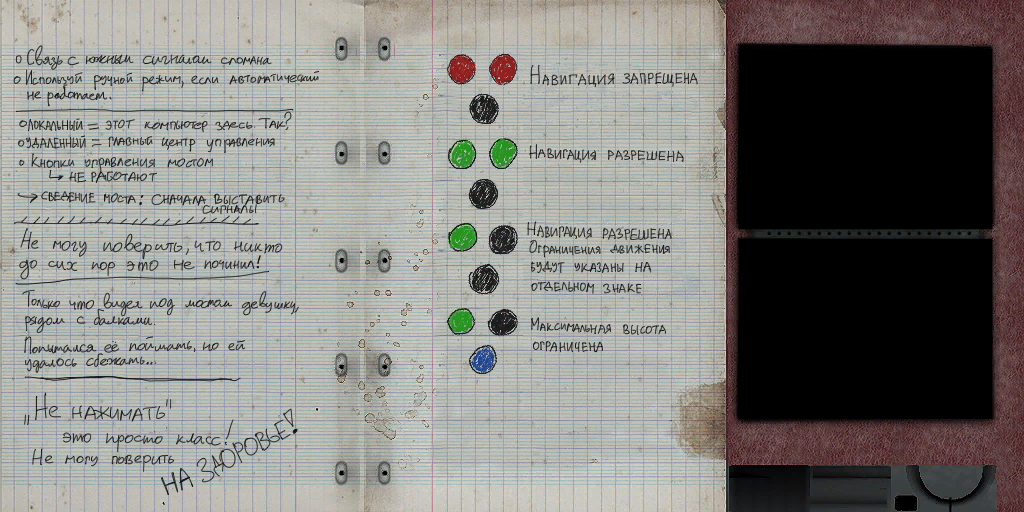 Связь с южными сигналами сломана
Используй ручной режим, если автоматический
не работает.
ЛОКАЛЬНЫЙ = этот компьютер здесь. Так?
УДАЛЕННЫЙ = главный центр управления
Кнопки управления мостом
↳ НЕ РАБОТАЮТ
→ СВЕДЕНИЕ МОСТА: СНАЧАЛА ВЫСТАВИТЬ
СИГНАЛЫ
Не могу поверить, что никто
до сих пор это не починил!
Только что видел под мостом девушку,
рядом с балками.
Попытался её поймать, но ей
удалось сбежать...
„Не НАЖИМАТЬ"
это просто класс!
Не могу поверить
НА ЗДОРОВЬЕ!
НАВИГАЦИЯ ЗАПРЕЩЕНА
НАВИГАЦИЯ РАЗРЕШЕНА
НАВИГАЦИЯ РАЗРЕШЕНА
ОГРАНИЧЕНИЯ ДВИЖЕНИЯ
БУДУТ УКАЗАНЫ НА
ОТДЕЛЬНОМ ЗНАКЕ
МАКСИМАЛЬНАЯ ВЫСОТА
ОГРАНИЧЕНА